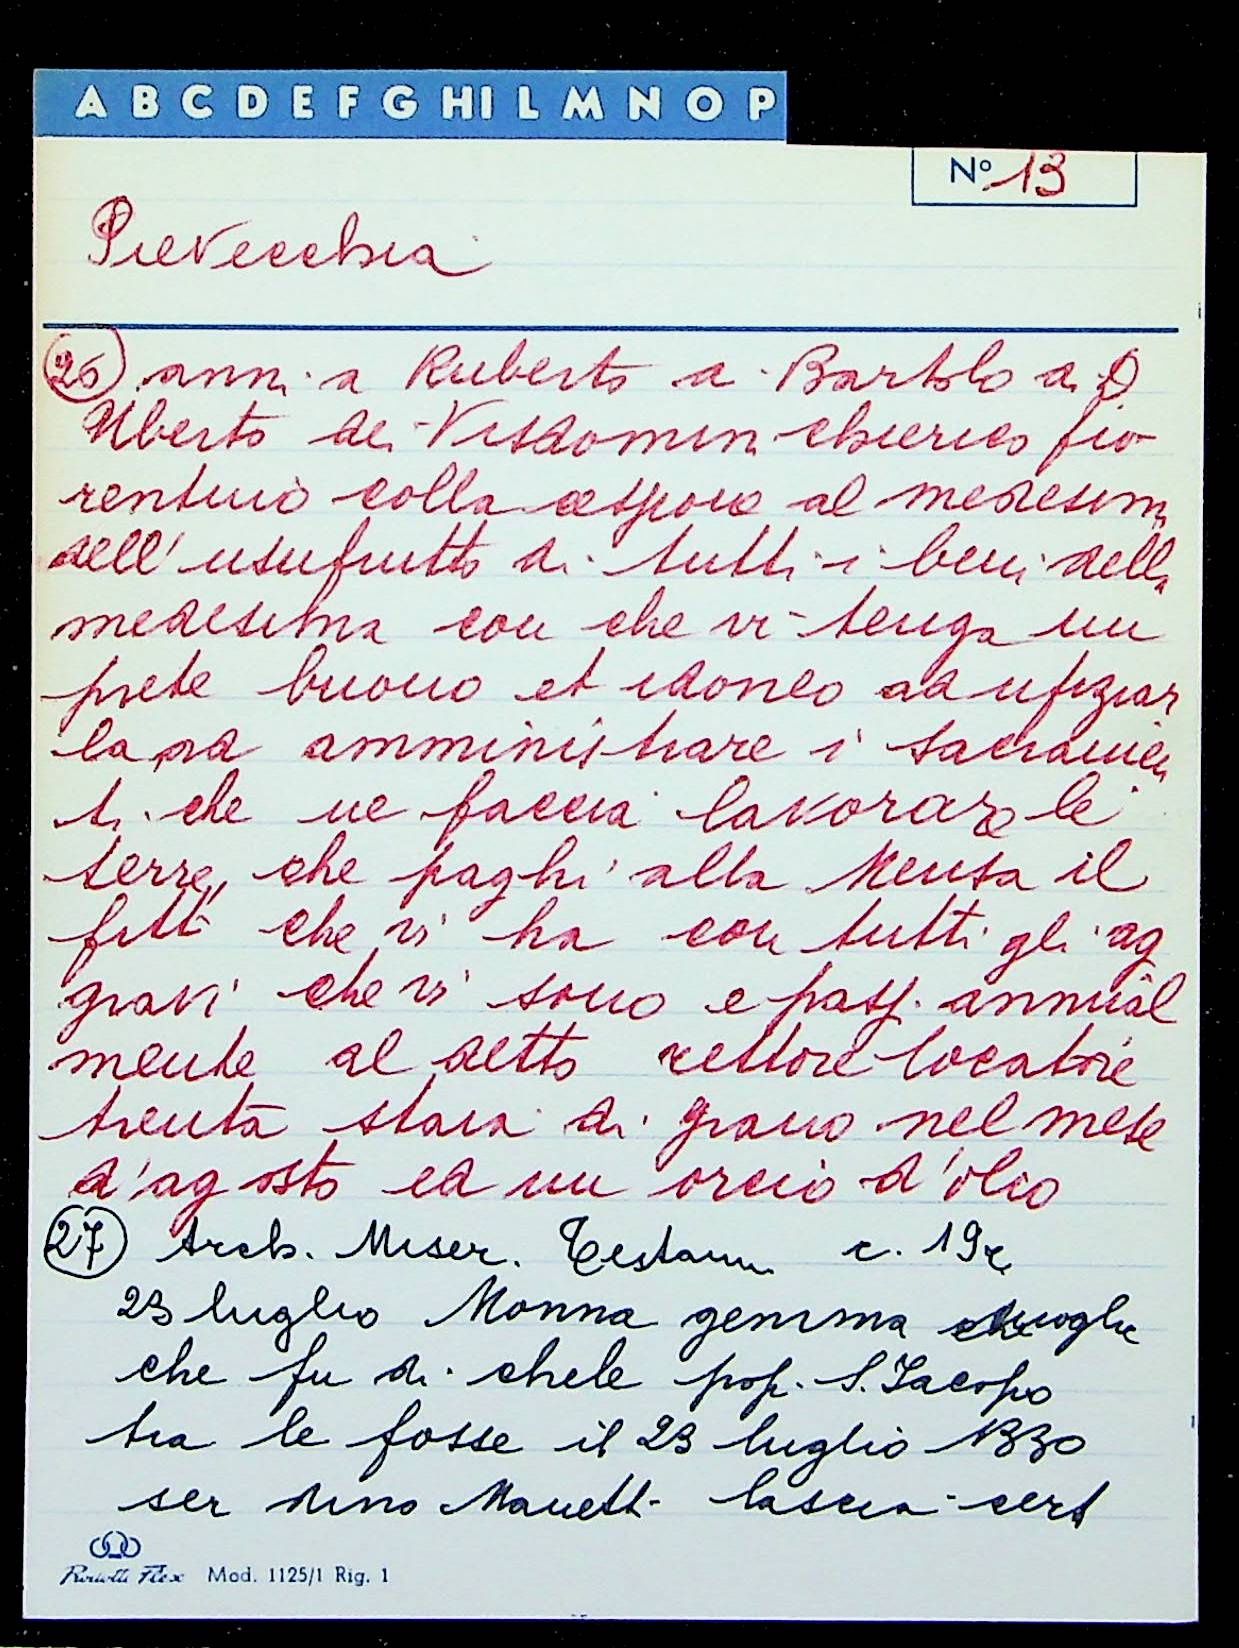 A B C D E F G HI L M N O P
Nº 13
Pievecchia
26 anni a Ruberto a Bartolo di D
Uberto dei Visdomin chierico fio-
rentino colla al medesim
dell' usufrutto di tutti i beni della
medesima con che vi tenga un
prete buono et idoneo ad ufiziar
la ad amministrare i sacramen
ti che ne faccia lavorare le
terre, che paghi alla Mensa il
fitt che vi ha con tutti gli ag
gravi che vi sono e annual
mente al detto rettore locatore
trenta staia di grano nel mese
d'agosto ed un orcio d'olio
27 Arch. Miser. Testam c. 19
23 luglio Monna gemma moglie
che fu di chele pop. S. Iacopo
tra le fosse il 23 luglio 1330
ser dino Manett lascia cert
Mod. 1125/1 Rig. 1